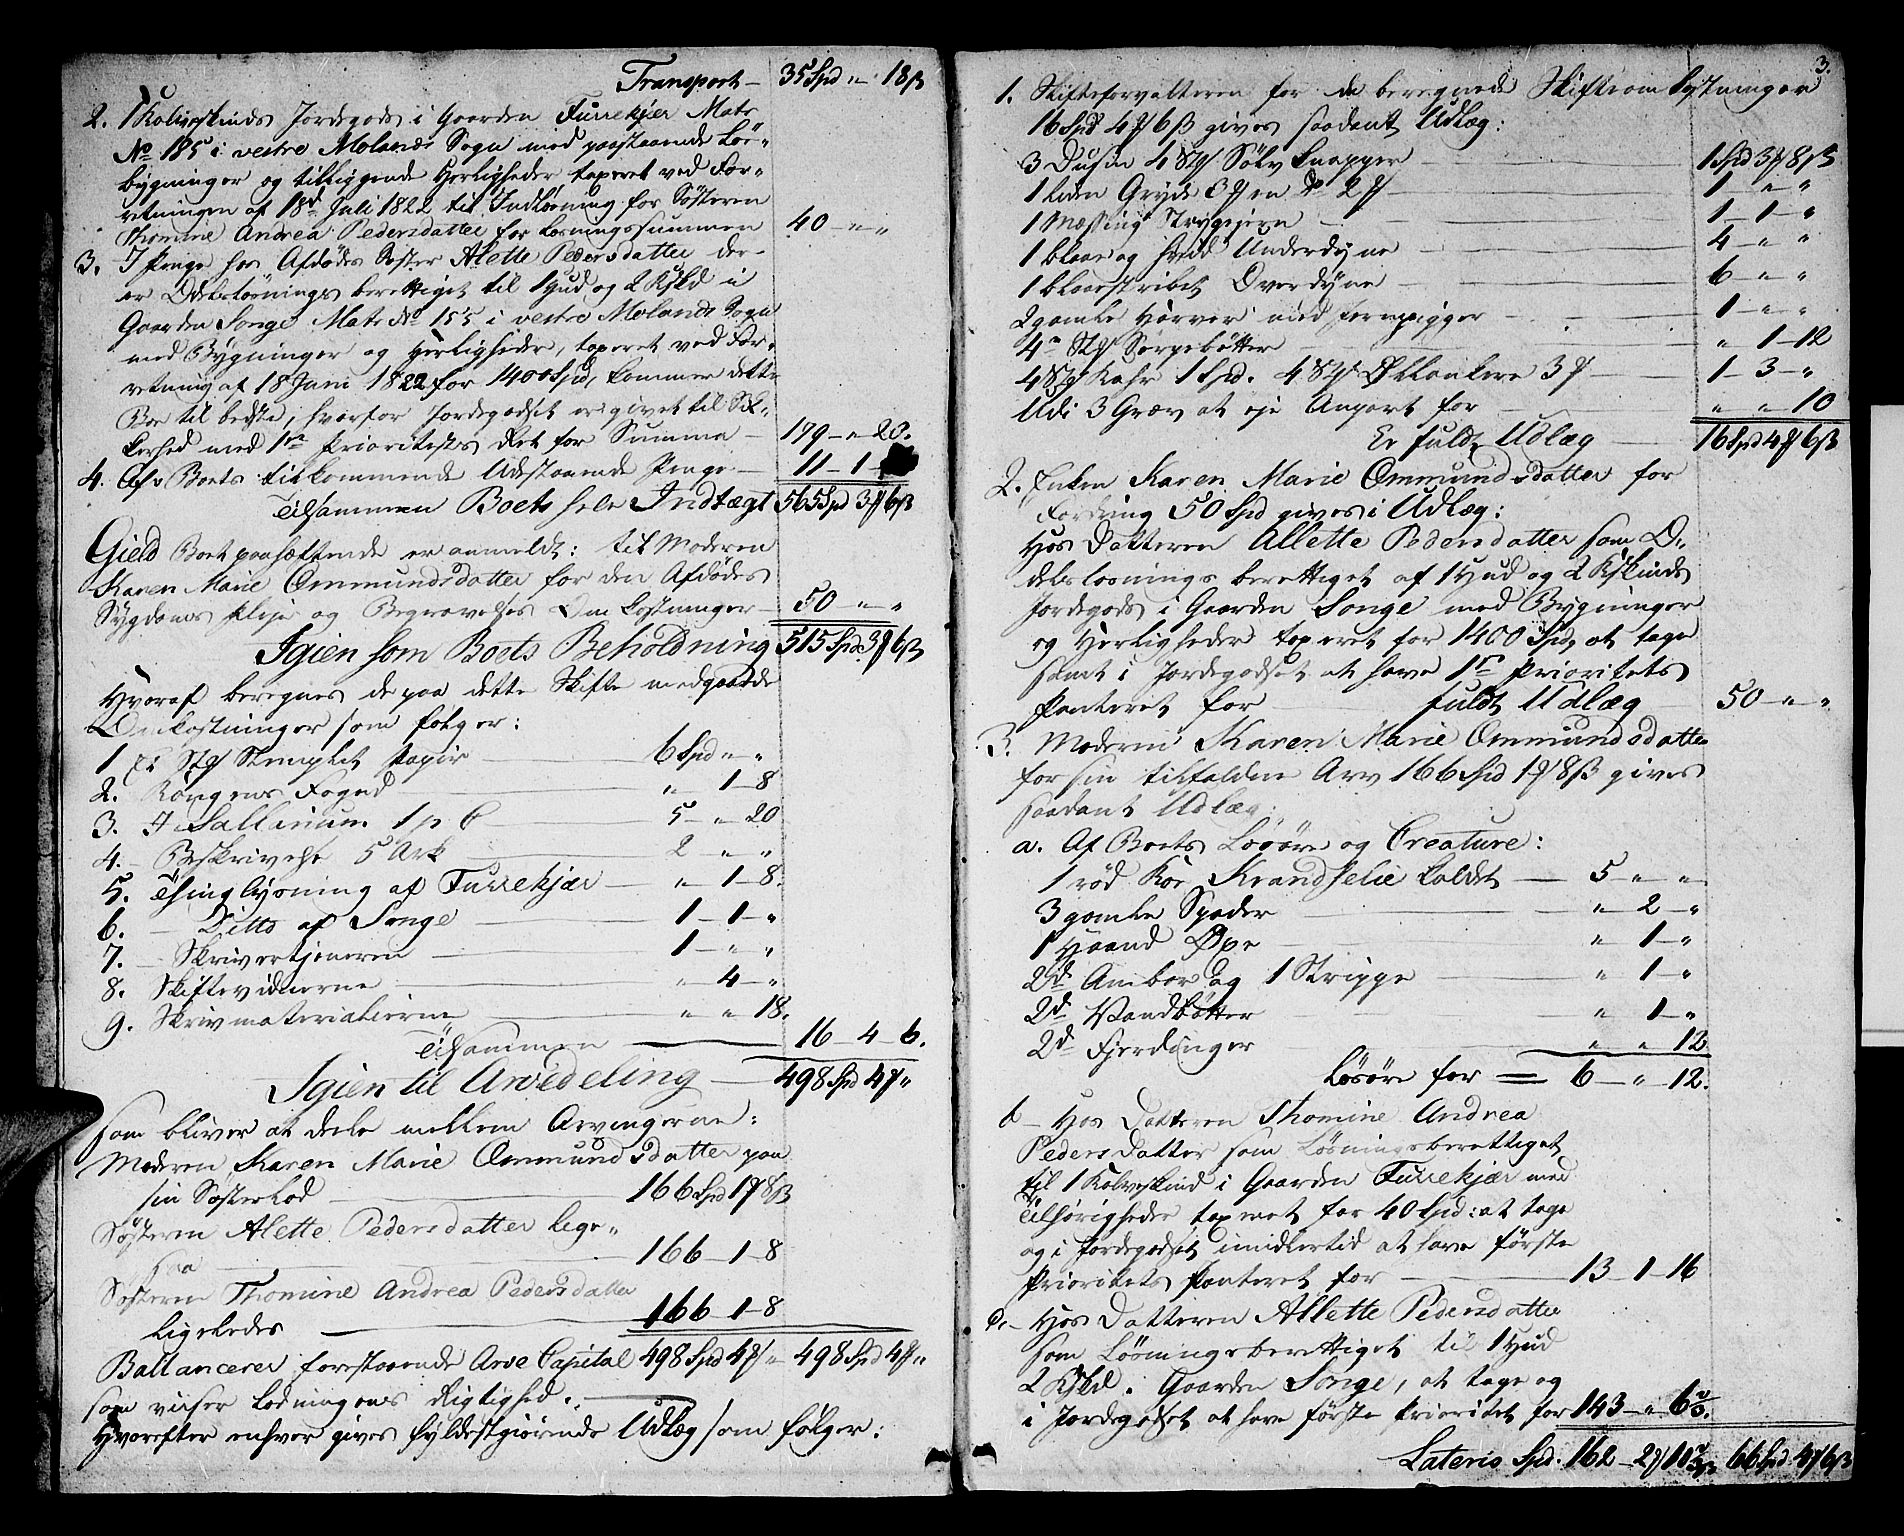 Transport — 35 Spd „ 18 ß
2. 1 Kalvskinds Jordegods i Gaarden Furrekjær Matr
No 185 i vestre Molands Sogn med paastaaende Løe-
bygninger og tilliggende Herligheder, taxeret ved For-
retningen af 18d Juli 1822 til Indløsning for Søsteren
Thomine Andrea Pedersdatter for Løsningssummen 40 – „ „
3. I Penge hos Afdødes Søster Alette Pedersdatter der
er Odelsløsnings berettiget til 1 Hud og 2 Kskd i
Gaarden Songe Matr No 155 i vestre Molands Sogn
med Bygninger og Herligheder, taxeret ved For-
retning af 18 Juni 1822 for 1400 Spd, kommer dette
Boe til bedste, hvorfor Jordegodset er givet til Sik-
kerhed med 1ste Prioritets Ret for Summa — 179 – „ 20.
4. Boets tilkommende Udestaaende Penge — 11 – 1 –
Tilsammen Boets hele Indtægt 565 Spd 3 ₰ 6 ß
Gield Boet paahæftende er anmeldt: til Moderen
Karen Marie Ommundsdatter for den Afdødes
Sygdoms Pleje og Begravelses Omkostninger — 50 – „ „
Igien som Boets Beholdning 515 Spd 3 ₰ 6 ß
Hvoraf beregnes de paa dette Skifte medgaaede
Omkostninger som følger:
1 Stemplet Papir — 6 Spd „ „
2. Kongens Foged — „ 1 – 8
3. Sallarium 1 p C — 5 – „ 20
4. – Beskrivelse 5 Ark — 2 „ „
5. Thinglysning af Furrekjær — „ 1 – 8.
6. – Ditto af Songe — 1 – 1 – „
7. – Skrivertjeneren — 1 – „ „
8. Skiftevidnerne — „ 4 – „
9. Skrivmaterialierne — „ „ 18.
Tilsammen — 16 – 4 – 6.
Igien til Arvedeling — 498 Spd 4 ₰ „
som bliver at dele mellem Arvingerne:
Moderen Karen Marie Ommundsdatter paa
sin Søsterlod — 166 Spd 1 ₰ 8 ß
Søsteren Alette Pedersdatter lige-
saa — 166 – 1 – 8
Søsteren Thomine Andrea Pedersdatter
ligeledes — 166 – 1 – 8
Ballancerer forestaaende Arve Capital 498 Spd 4 ₰ „ 498 Spd 4 ₰ „
som viser Lodningens Rigtighed.
Hvorefter enhver gives fyldestgiørende Udlæg som følger:
3.
1. Skifteforvalteren for de beregnede Skifteomkostninger
16 Spd 4 ₰ 6 ß gives saadant Udlæg:
3 Dusin 4 Stk Sølv Knapper — 1 Spd 3 ₰ 8 ß
1 liden Gryde 3 ₰ en Do 2 ₰ — 1 – „ „
1 Messing Strygejern — 1 – 1 – „
1 blaae og hvid Underdyne — 4 – „ „
1 blaaestribet Overdyne — 6 – „ „
2 gamle Harver med Jernpigger — 1 – „ „
4re Stk Sorgebøtter — „ 1 – 12
4 Stk Kahr 1 Spd. 4 Stk Øltankere 3 ₰ — 1 – 3 – „
Udi 3 Græv at eje Anpart for — „ „ 10
Er fuldt Udlæg — 16 Spd 4 ₰ 6 ß
2. Enken Karen Marie Ommundsdatter for
Fordring 50 Spd gives i Udlæg:
Hos Datteren Allette Pedersdatter som O-
delsløsnings berettiget af 1 Hud og 2 Kskinds
Jordegods i Gaarden Songe med Bygninger
og Herligheder taxeret for 1400 Spd, at tage
samt i Jordegodset at have 1ste Prioritets
Panteret for — fuldt Udlæg — 50 – „ „
3. Moderen Karen Marie Ommundsdatter
for sin tilfaldne Arv 166 Spd 1 ₰ 8 ß gives
saadant Udlæg:
a. Af Boets Løsøre og Creature:
1 rød Koe Krandselie kaldet — 5 „ „
3 gamle Spader — „ 2 – „
1 Haand Øxe — „ 1 – „
2de Ambar og 1 Strippe — „ 1 – „
2de Vandbøtter — „ 1 – „
2de Fjerdinger — „ „ 12
Løsøre for — 6 – „ 12.
b – Hos Datteren Thomine Andrea
Pedersdatter som Løsningsberettiget
til 1 Kalveskind i Gaarden Furrekjær med
Tilhørigheder taxeret for 40 Spd: at tage
og i Jordegodset imidlertid at have første
Prioritets Panteret for — 13 – 1 – 16
c. – Hos Datteren Allette Pedersdatter
som Løsningsberettiget til 1 Hud
2 Kskd i Gaarden Songe, at tage og
i Jordegodset at have første Prioritet for 143 – „ 6
Lateris Spd. 162 – 2 ₰ 10 66 Spd 4 ₰ 6 ß